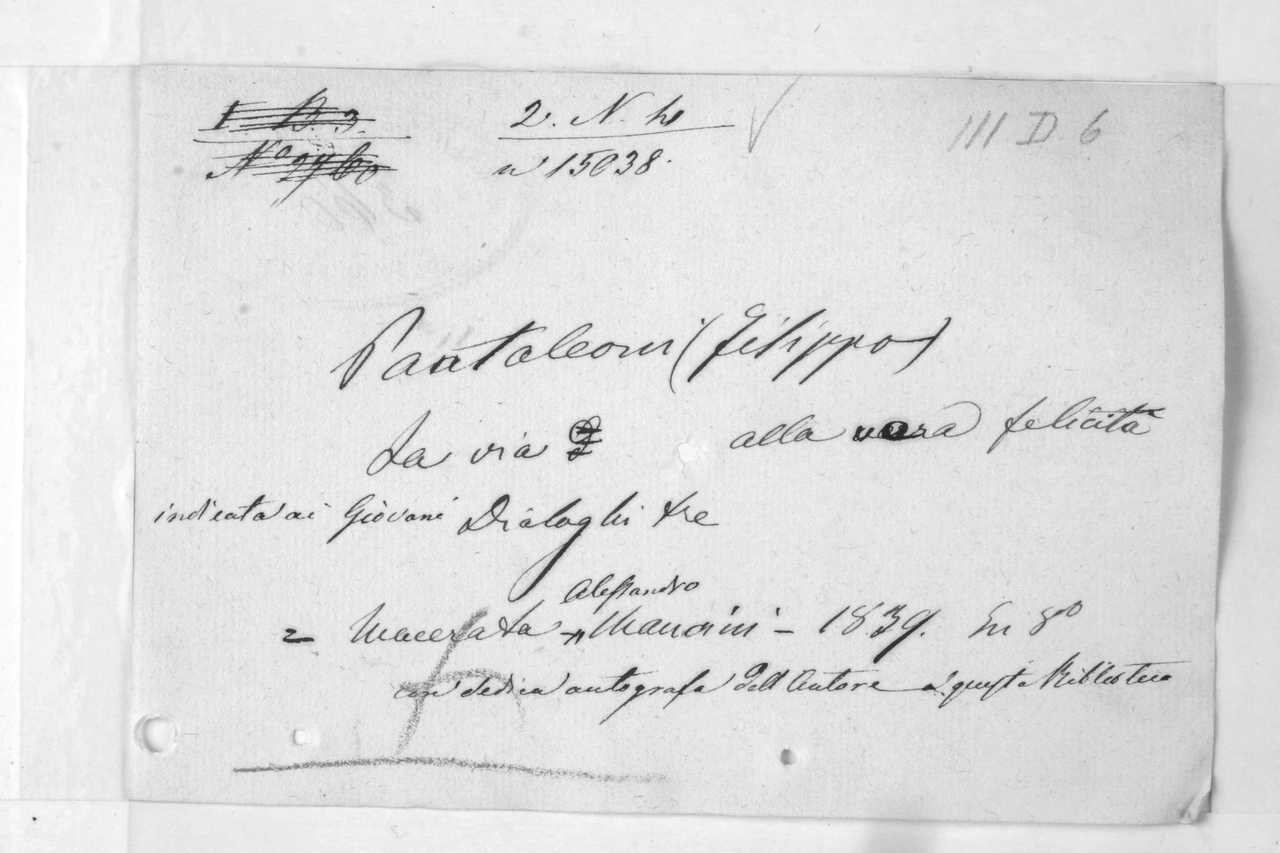 I. D. 3.
2. N. 
III D 6
n 15038.
Pantaleoni (Filippo)
La via alla vera felicità
indicata ai Giovani Dialoghi tre
Alessandro
= Macerata Mancini - 1839. In 8º
con dedica autografa dell'Autore a questa Biblioteca